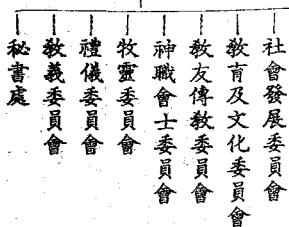 社會發展委員會
教育及文化委員會
教友傳教委員會
神職會士委員會
牧靈委員會
禮儀委員會
教義委員會
秘書處